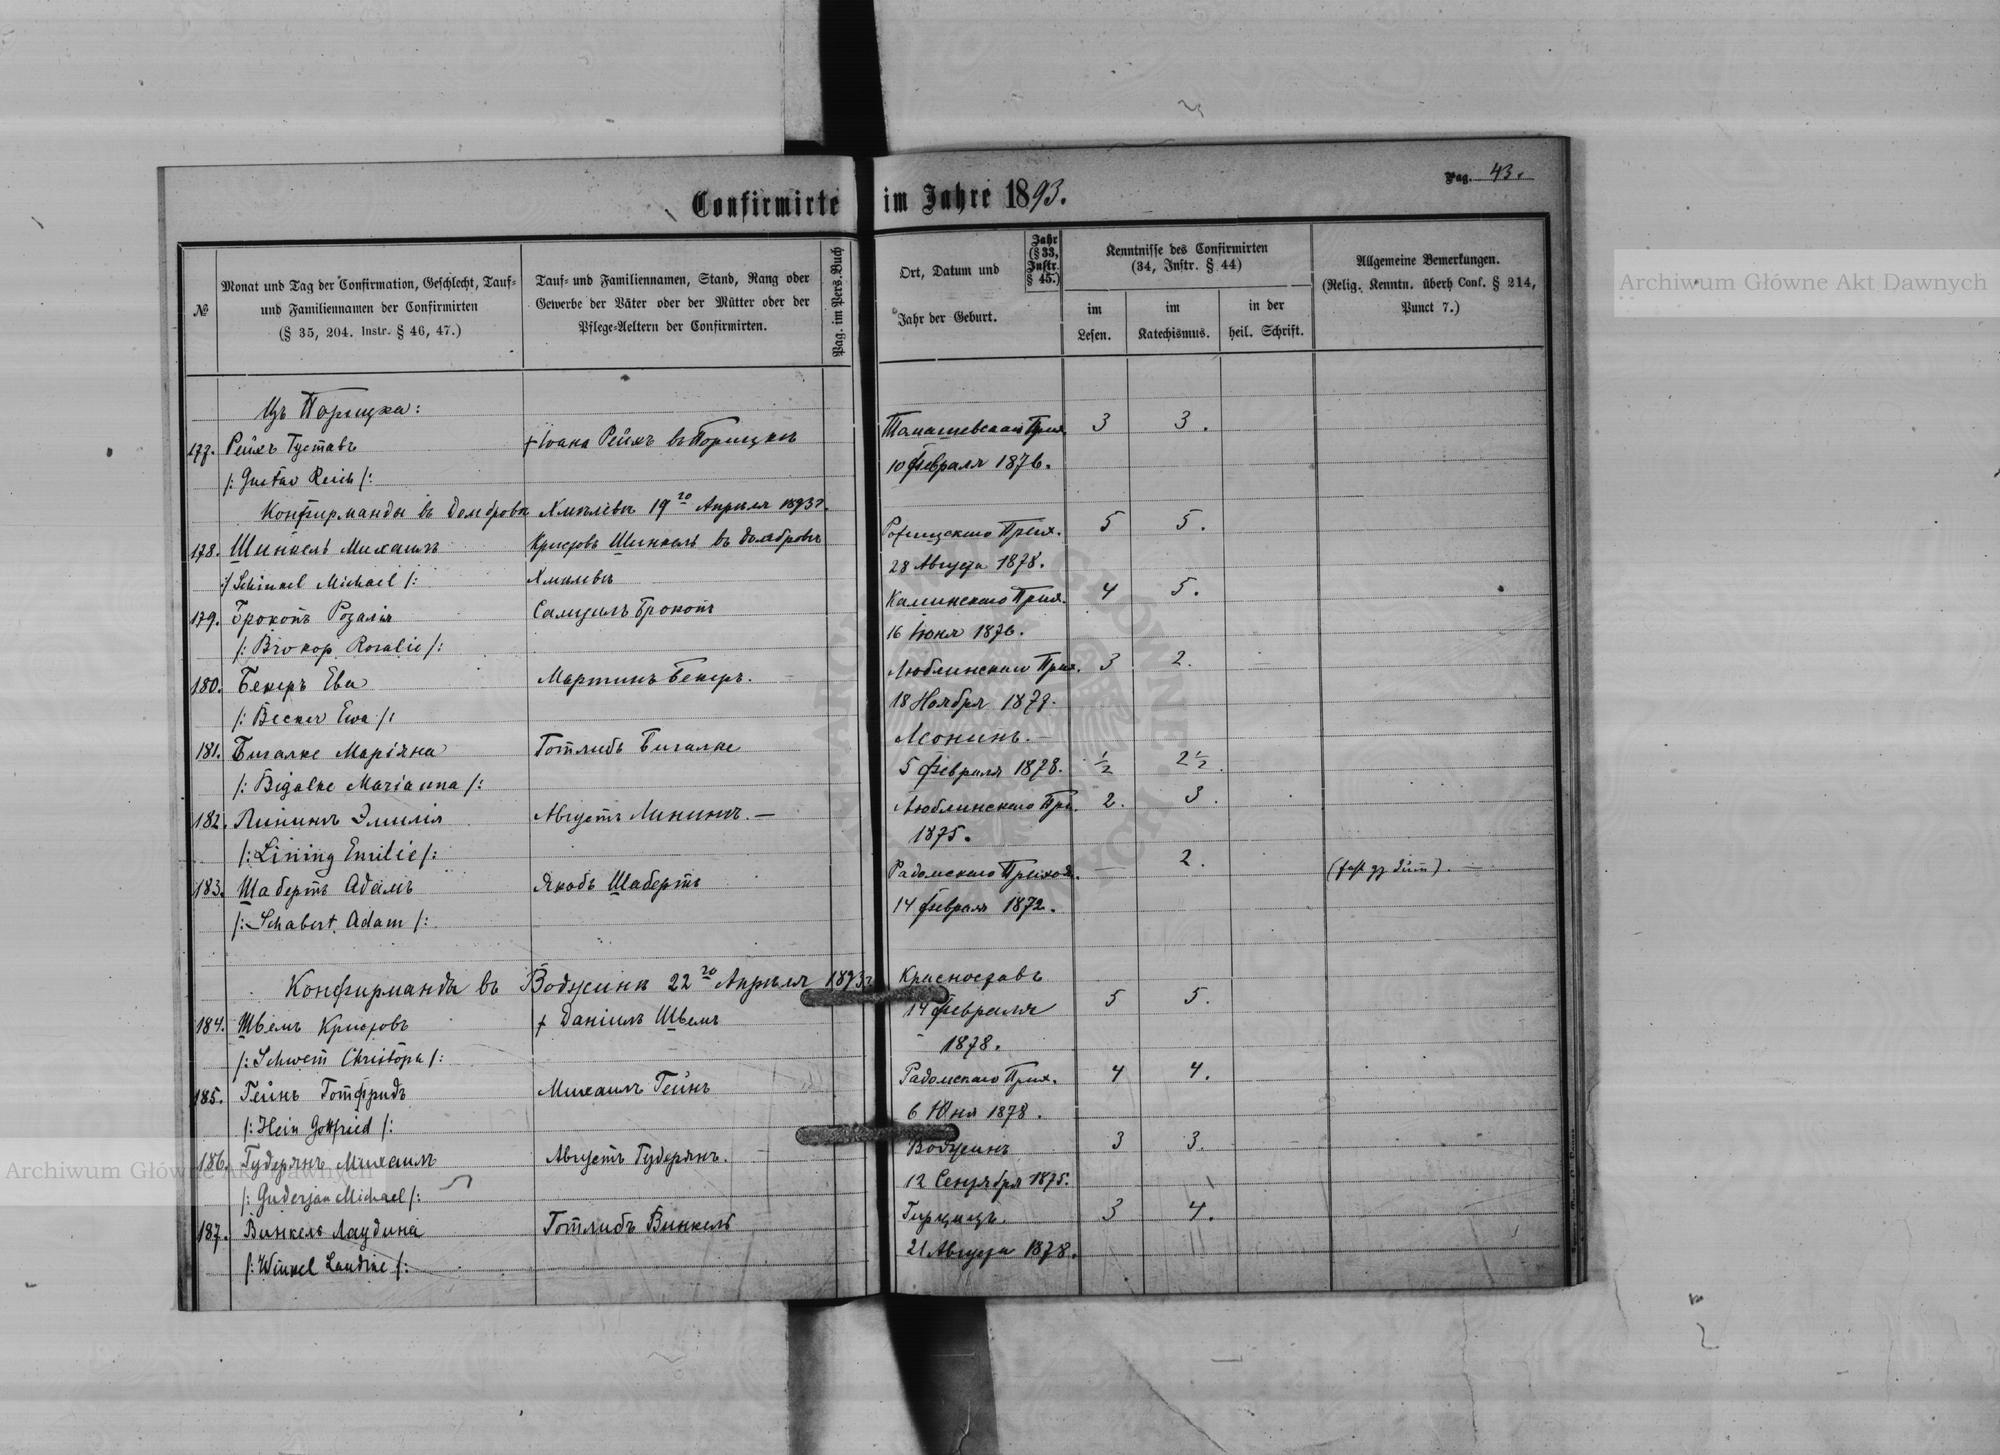 Confirmirte im Jahre 1893.
Pag. 43.
№
Monat und Tag der Confirmation, Geschlecht, Tauf-
und Familiennamen der Confirmirten
(§ 35, 204. Instr. § 46, 47.)
Tauf- und Familiennamen, Stand, Rang oder
Gewerbe der Väter oder der Mütter oder der
Pflege-Aeltern der Confirmirten.
Pag. im Pers.-Buch
Ort, Datum und
Jahr der Geburt.
Jahr
(§ 33,
Instr.
§ 45.)
Kenntnisse des Confirmirten
(34, Instr. § 44)
im
Lesen.
im
Katechismus.
in der
heil. Schrift.
Allgemeine Bemerkungen.
(Relig. Kenntn. überh Conf. § 214,
Punct 7.)
Изъ Порыцка:
177. Рейхъ Густавъ † Іоанъ Рейхъ въ Порицкъ Томашевскаго Прих. 3 3.
/: Gustav Reich /: 10 Февраля 1876.
Конфирманды въ Домброва Хмѣлевъ 19го Апрѣля 1893г.
178. Шинкель Михаилъ Кристовъ Шинкель въ Домбровъ Рожищскаго Прих. 5 5.
:/ Schinkel Michael /: Хмѣлевъ 28 Августа 1878.
179. Брокопъ Розалія Самуилъ Брокопъ Каминскаго Прих. 4 5.
/: Brokop Rosalie /: 16 Іюня 1876.
180. Бекеръ Ева Мартинъ Бекеръ. Люблинскаго Прих. 3 2.
/: Becker Ewa /: 18 Ноября 1879.
181. Бигалке Маріяна Готлибъ Бигалке Леонинъ.
/: Bigalke Marianna /: 5 Февраля 1878. ½ 2½.
182. Лининъ Эмилія Августъ Лининъ. — Люблинскаго При. 2. 3.
/: Lining Emilie /: 1875.
183. Шабертъ Адамъ Якобъ Шабертъ Радомскаго Приход. — 2.
/: Schabert Adam /: 14 Февраля 1872.
Конфирманды въ Водзинъ 22го Апрѣля 1893г.
184. Швемъ Кристовъ † Даніилъ Швемъ Красноставъ 5 5.
/: Schwem Christopa /: 14 Февраля
1878.
185. Гейнъ Готфридъ Михаилъ Гейнъ Радомскаго Прих. 4 4.
/: Hein Gottfried /: 6 Юня 1878.
186. Гудерянъ Михаилъ Августъ Гудерянъ. Водзинъ 3 3.
/: Guderjan Michael /: 12 Сентября 1875.
187. Винкель Лаудина Готлибъ Винкель 3 4.
/: Winkel Laudine /: 21 Августа 1878.
Archiwum Główne Akt Dawnych
Archiwum Główne Akt Dawnych